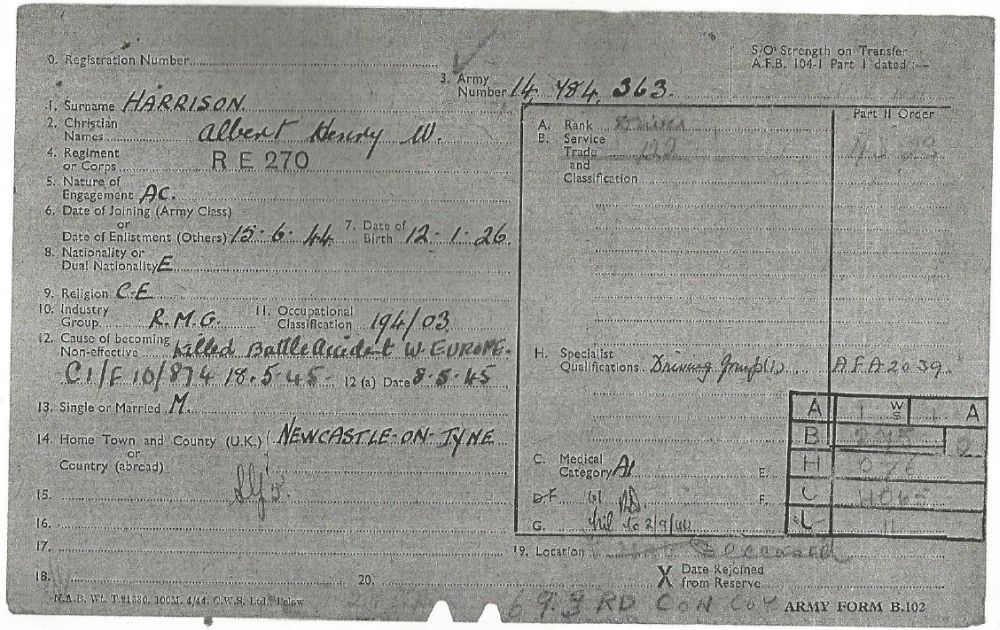 S/O Strength on Transfer
A.F.B. 104-1 Part I dated :—
0. Registration Number
3. Army
Number 14,784,363.
1. Surname HARRISON
2. Christian
Names Albert Henry W.
4. Regiment
or Corps R E 270
5. Nature of
Engagement AC.
6. Date of Joining (Army Class)
or
Date of Enlistment (Others) 15·6·44 7. Date of
Birth 12·1·26.
8. Nationality or
Dual Nationality E
9. Religion C.E
10. Industry
Group R.M.G. 11. Occupational
Classification 194/03
12. Cause of becoming
Non-effective Killed Battle Accident W. EUROPE.
C1/E 10/874 18.5.45. 12 (a) Date 8·5·45
13. Single or Married M.
14. Home Town and County (U.K.) NEWCASTLE-ON-TYNE
or
Country (abroad)
15.
16.
17.
18. 20.
Part II Order
A. Rank Driver
B. Service
Trade
and
Classification
H. Specialist
Qualifications Driving Group (1). AFA2039.
C. Medical
Category A1 E.
D. F.
G. Nil
A W
S A
B 2
H
C
L 11
19. Location Deceased
X Date Rejoined
from Reserve
93 RD CON COY
N.A.B. Wt. T.21330. 100M. 4/44. C.W.S. Ltd., Pelaw
ARMY FORM B.102